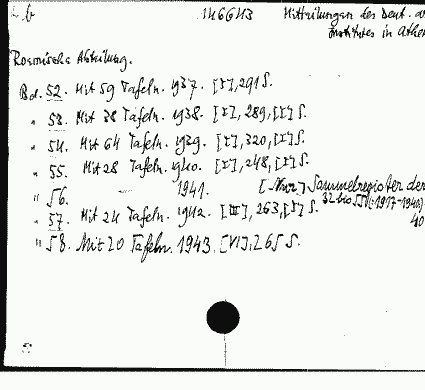 146643 Mitteilungen des Deut. a
Institutes in Athe
Bd. 52. Mit 59 Tafeln. 1937. [I], 291 S.
" 53. Mit 38 Tafeln. 1938. [I], 289, [I] S.
" 54. Mit 64 Tafeln. 1939. [I], 320, [I] S.
" 55. Mit 28 Tafeln. 1940. [I], 248, [I] S.
" 56. 1941. [Nur] Sammelregister der
32 bis 55 (1917-1940)
" 57. Mit 24 Tafeln. 1942. [III], 263, [I] S.
40
" 58. Mit 20 Tafeln. 1943. [VI], 265 S.